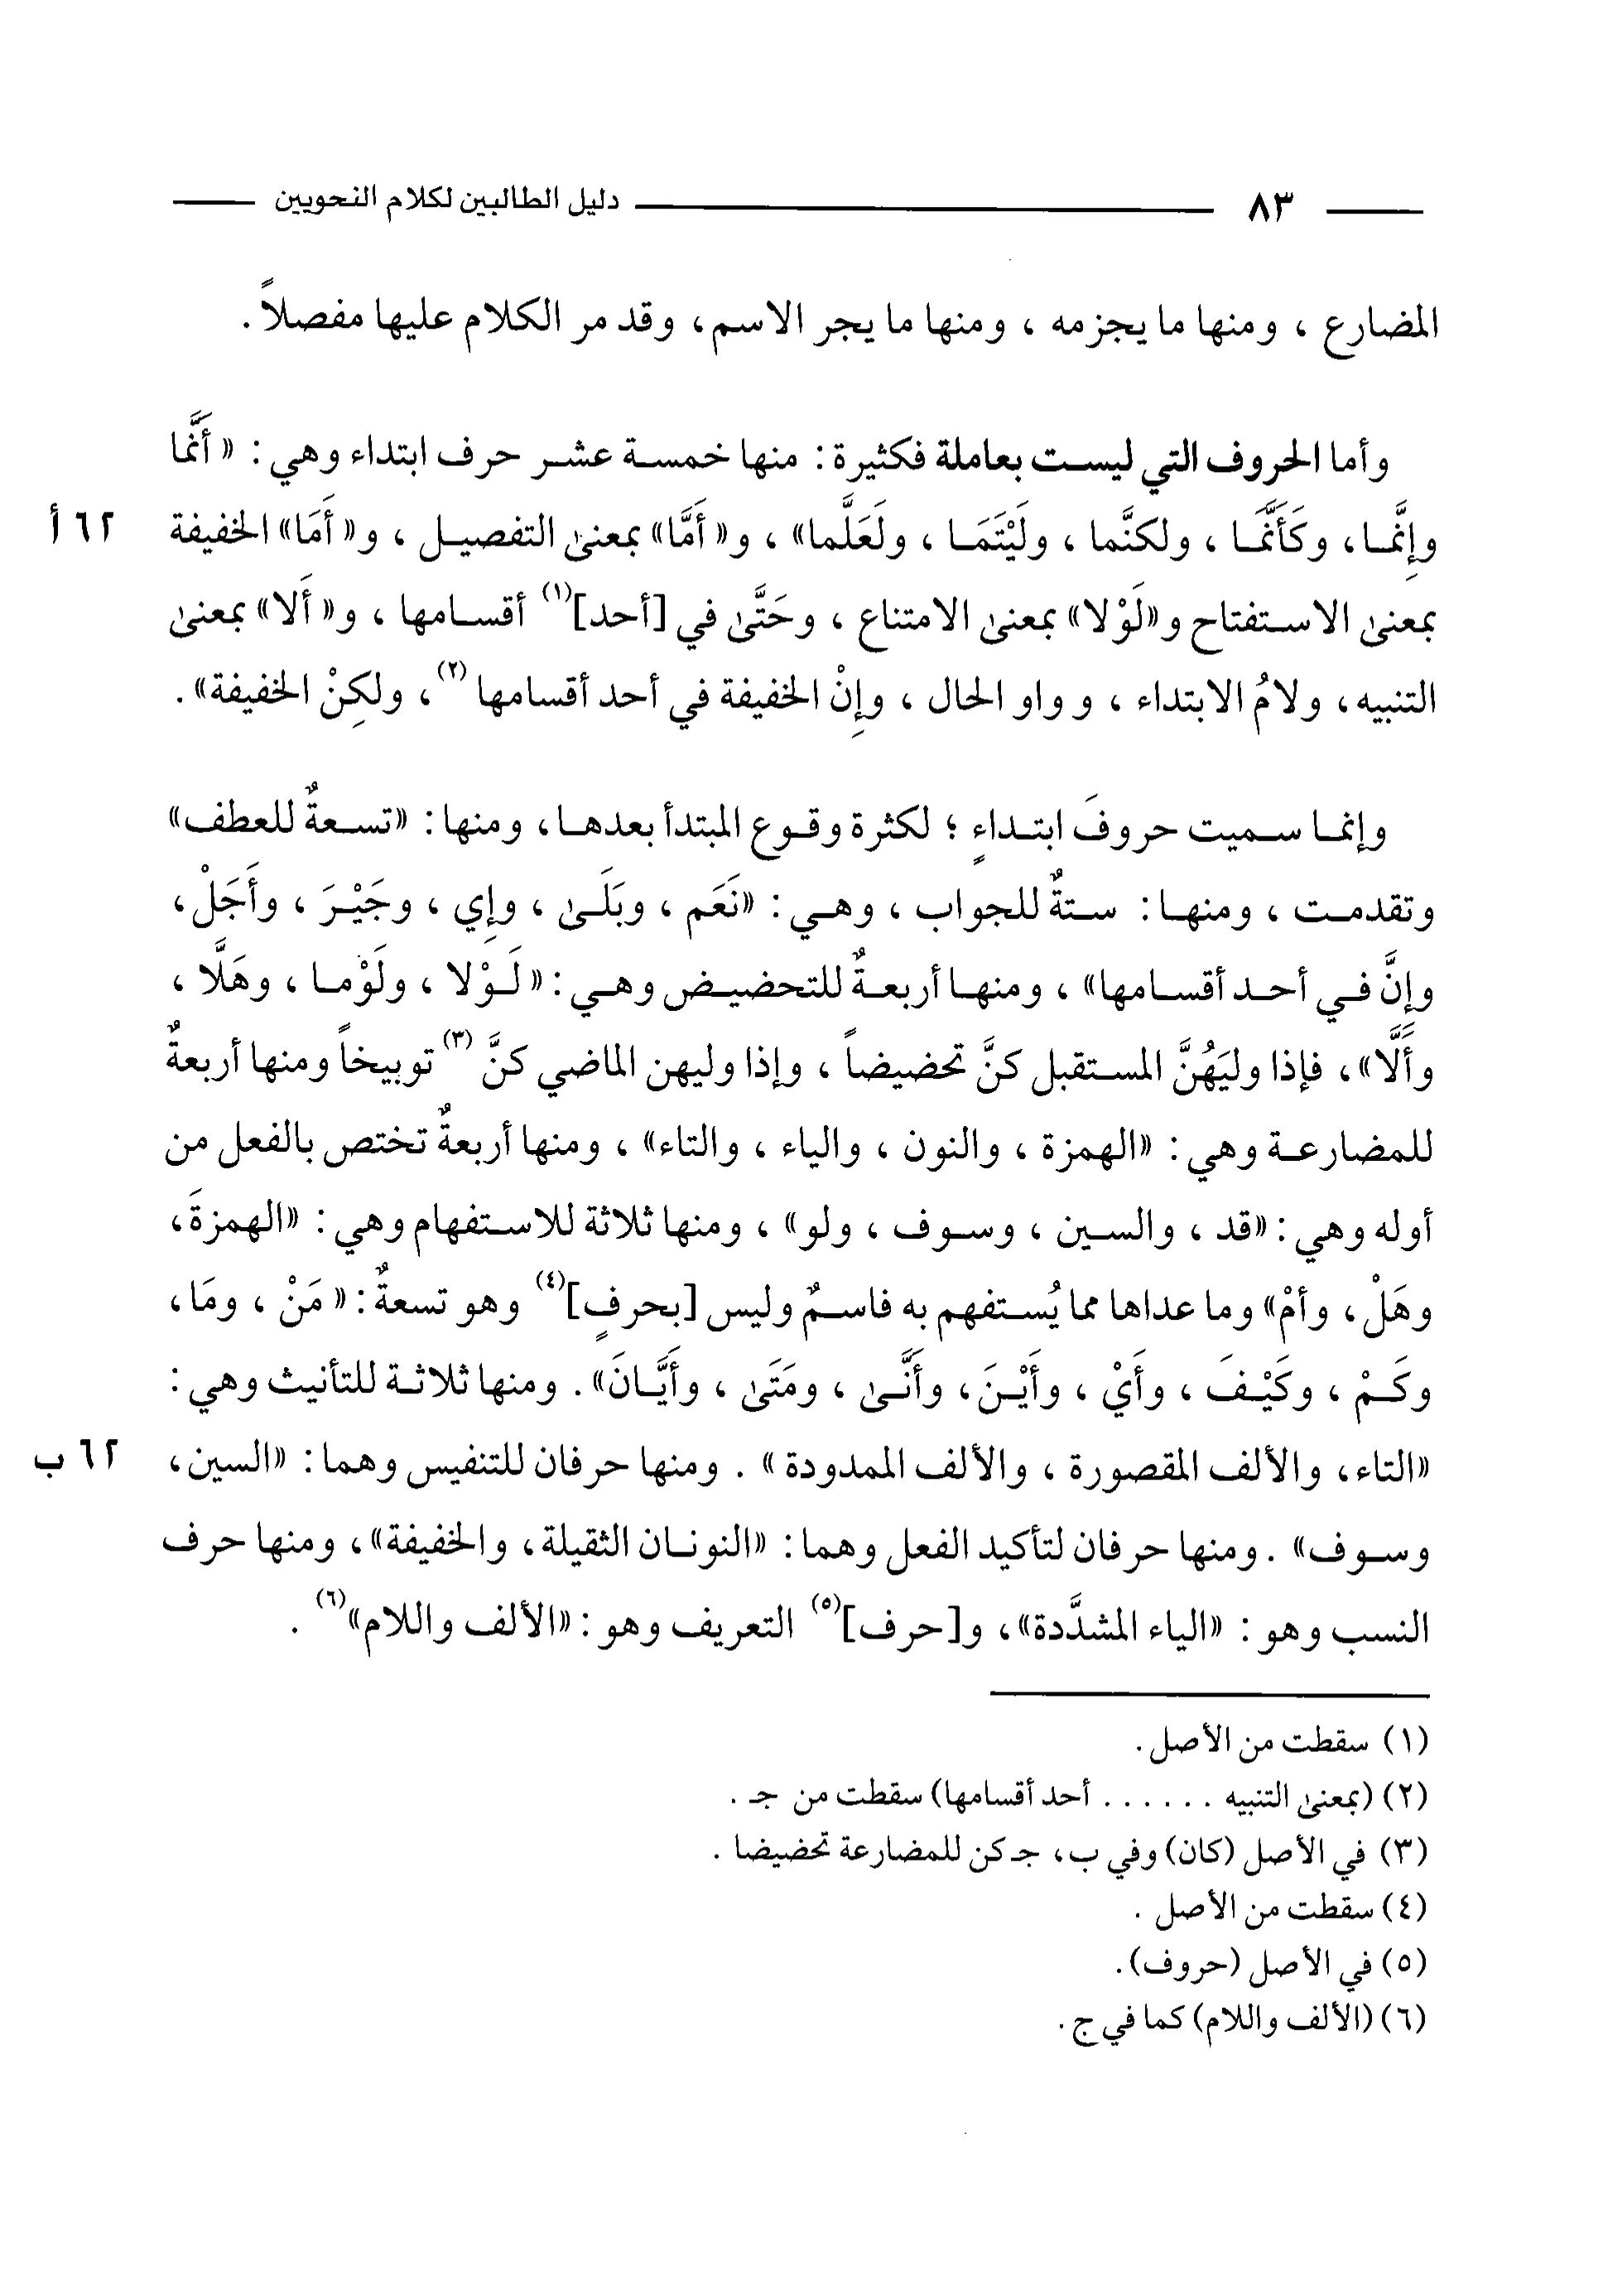 ٨٣ دليل الطالبين لكلام النحويين
المضارع ، ومنها ما يجزمه ، ومنها ما يجر الاسم، وقد مر الكلام عليها مفصلاً .
وأما الحروف التي ليست بعاملة فكثيرة : منها خمسة عشر حرف ابتداء وهي : « أَنَّما
وإِنَّما، وكَأَنَّمَا ، ولكنَّما ، ولَيْتَمَا ، ولَعَلَّما» ، و« أَمَّا» بمعنىٰ التفصيل ، و« أَمَا» الخفيفة ٦٢ أ
بمعنىٰ الاستفتاح و«لَوْلا» بمعنىٰ الامتناع ، وحَتَّىٰ في [أحد](١) أقسامها ، و« أَلا» بمعنىٰ
التنبيه، ولامُ الابتداء ، و واو الحال ، وإِنْ الخفيفة في أحد أقسامها(٢)، ولكِنْ الخفيفة» .
وإنما سميت حروفَ ابتداءٍ ؛ لكثرة وقوع المبتدأ بعدها، ومنها : «تسعةٌ للعطف»
وتقدمت ، ومنها : ستةٌ للجواب ، وهي : «نَعَم ، وبَلَىٰ ، وإِي ، وجَيْرَ ، وأَجَلْ،
وإنَّ في أحد أقسامها» ، ومنها أربعةٌ للتحضيض وهي : « لَوْلا ، ولَوْما ، وهَلَّا ،
وأَلَّا» ، فإذا وليَهُنَّ المستقبل كنَّ تحضيضاً ، وإذا وليهن الماضي كنَّ (٣) توبيخاً ومنها أربعةٌ
للمضارعة وهي : «الهمزة ، والنون ، والياء ، والتاء» ، ومنها أربعةٌ تختص بالفعل من
أوله وهي : «قد ، والسين ، وسوف ، ولو» ، ومنها ثلاثة للاستفهام وهي : «الهمزةَ،
وهَلْ، وأمْ» وما عداها مما يُستفهم به فاسمٌ وليس [بحرفٍ](٤) وهو تسعةٌ : « مَنْ ، ومَا،
وكَمْ ، وكَيْفَ ، وأَيْ ، وأَيْنَ، وأَنَّىٰ ، ومَتَىٰ ، وأَيَّانَ» . ومنها ثلاثة للتأنيث وهي :
«التاء، والألف المقصورة ، والألف الممدودة » . ومنها حرفان للتنفيس وهما : «السين، ٦٢ ب
وسوف» . ومنها حرفان لتأكيد الفعل وهما : «النونان الثقيلة، والخفيفة»، ومنها حرف
النسب وهو : «الياء المشدَّدة»، و[حرف](٥) التعريف وهو : «الألف واللام»(٦) .
(١) سقطت من الأصل .
(٢) (بمعنىٰ التنبيه . . . . . . أحد أقسامها) سقطت من جـ .
(٣) في الأصل (كان) وفي ب، جـ كن للمضارعة تحضيضا .
(٤) سقطت من الأصل .
(٥) في الأصل (حروف) .
(٦) (الألف واللام) كما في ج .